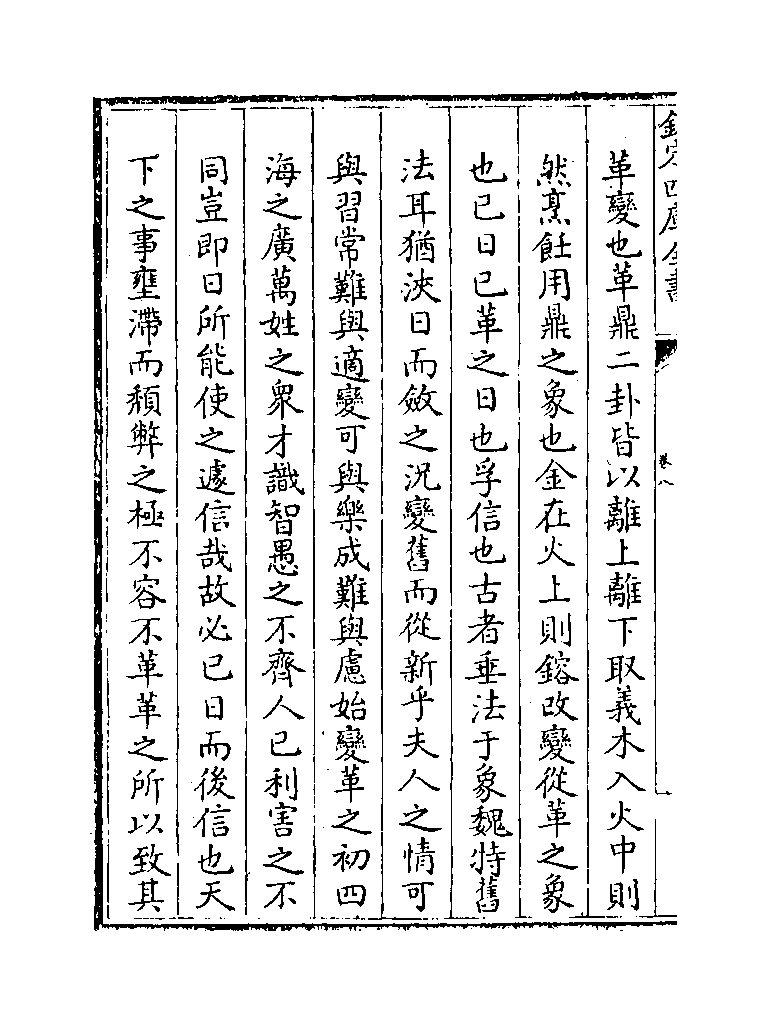 欽定四庫全書
卷八
革變也革鼎二卦皆以離上離下取義木入火中則
然烹飪用鼎之象也金在火上則鎔改變從革之象
也已日已革之日也孚信也古者垂法于象魏特舊
法耳猶浹日而斂之況變舊而從新乎夫人之情可
與習常難與適變可與樂成難與慮始變革之初四
海之廣萬姓之衆才識智愚之不齊人已利害之不
同豈即日所能使之遽信哉故必已日而後信也天
下之事壅滯而頹弊之極不容不革革之所以致其